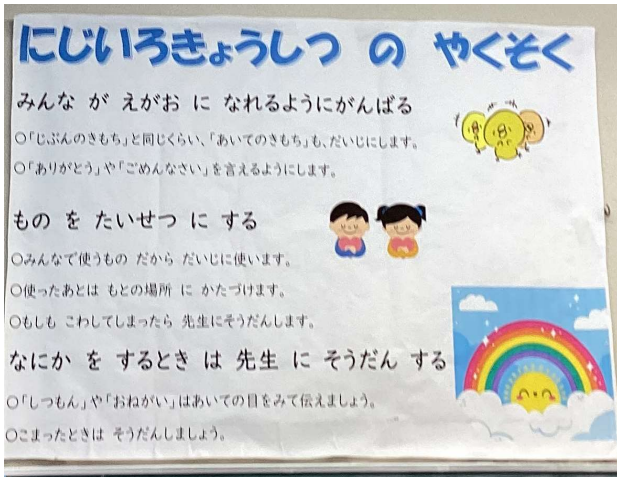 にじいろきょうしつ の やくそく
みんな が えがお に なれるようにがんばる
○「じぶんのきもち」と同じくらい、「あいてのきもち」も、だいじにします。
○「ありがとう」や「ごめんなさい」を言えるようにします。
もの を たいせつ に する
○みんなで使うもの だから だいじに使います。
○使ったあとは もとの場所 に かたづけます。
○もしも こわしてしまったら 先生にそうだんします。
なにか を するとき は 先生 に そうだん する
○「しつもん」や「おねがい」はあいての目をみて伝えましょう。
○こまったときは そうだんしましょう。